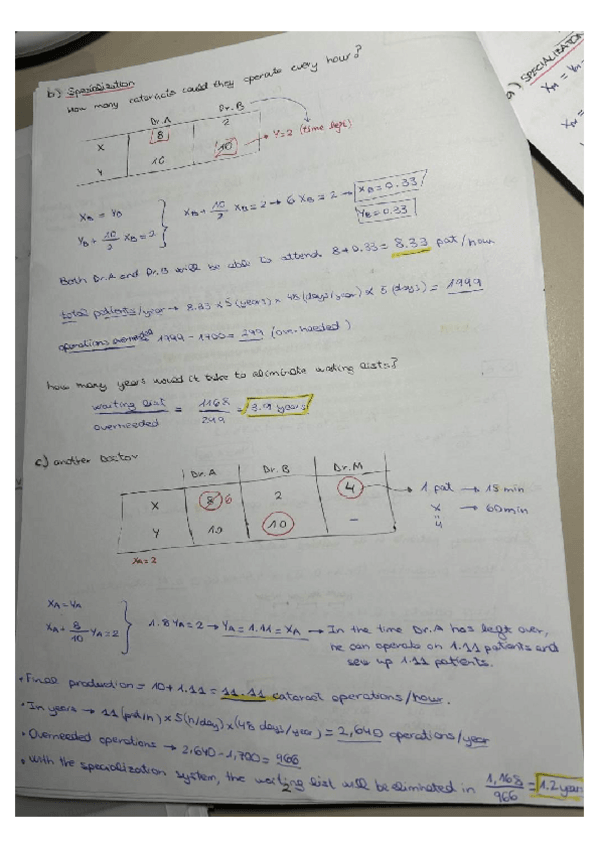 b) Specialization
How many cataracts could they operate every hour?
Dr. A Dr. B
X 8 2
Y 10 10 → Y=2 (time left)
XB = YB
YB + 10/2 XB = 2
XB + 10/2 XB = 2 → 6 XB = 2 → XB = 0.33
YB = 0.33
Both Dr. A and Dr. B will be able to attend 8 + 0.33 = 8.33 pat/hour
total patients/year → 8.33 × 5 (years) × 48 (days/year) × 5 (days) = 1999
operations overneeded 1999 - 1700 = 299 (overneeded)
how many years would it take to eliminate waiting lists?
waiting list / overneeded = 1168 / 299 = 3.9 years
c) another Doctor
Dr. A Dr. B Dr. M
X 8 6 2 4 → 1 pat → 15 min
x → 60 min
4
Y 10 10 -
XA = 2
XA = YA
XA + 8/10 YA = 2
1.8 YA = 2 → YA = 1.11 = XA → In the time Dr. A has left over,
he can operate on 1.11 patients and
sew up 1.11 patients.
• Final production = 10 + 1.11 = 11.11 cataract operations/hour.
• In years → 11 (pat/h) × 5 (h/day) × (48 days/year) = 2,640 operations/year
• Overneeded operations → 2,640 - 1,700 = 966
• with the specialization system, the waiting list will be eliminated in 1,168 / 966 = 1.2 years
2
a) SPECIALIZATION